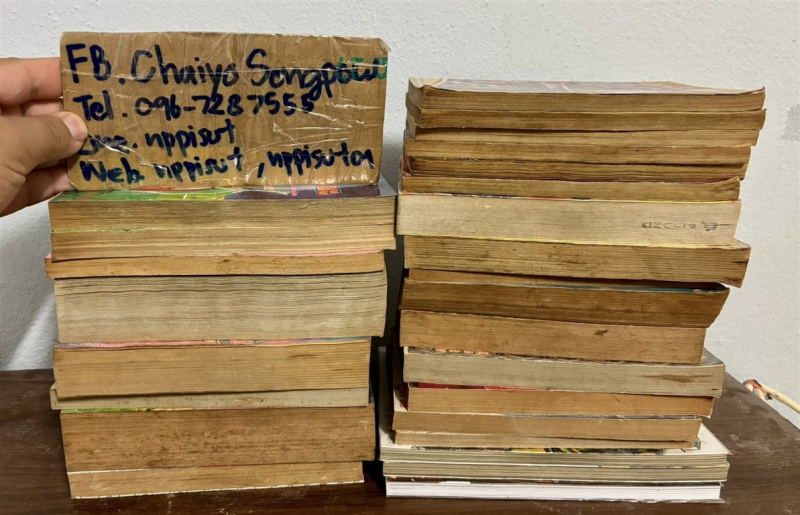 FB. Chaiyo Songpow
Tel. 096-7287555
Line. nppisut
Web. nppisut, nppisut01